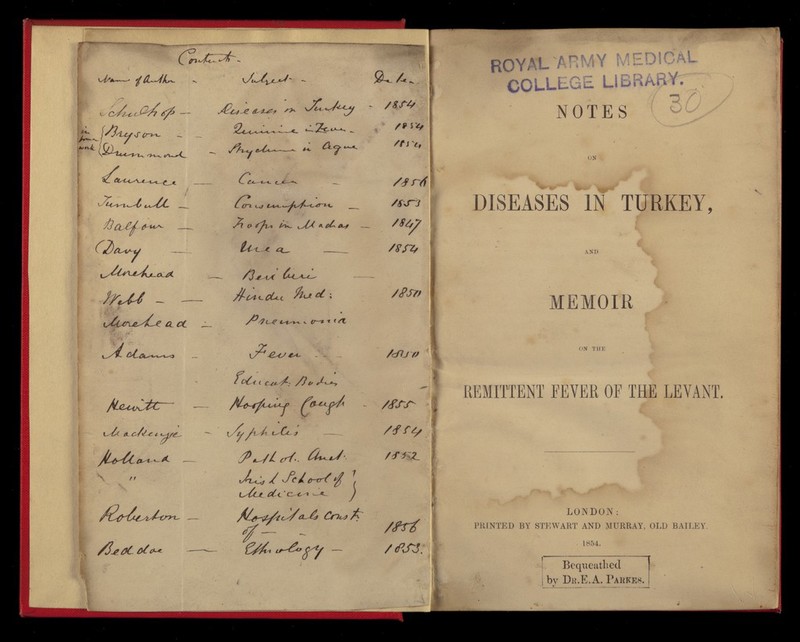 Contents -
Name of Author - Subject - Date
Schulhof - Diseases in Turkey - 1854
in same work { Bryson - - Quinine in Fever - 1854
Drummond - Strychnine in Ague 1854
Laurence - Cancer - 1856
Turnbull - Consumption - 1853
Balfour - Troops in Madras - 1847
Davy - Urea - 1854
Morehead - Beri beri -
Webb - - Hindu Med: 1850
Morehead - Pneumonia
Adams - Fever - - 1850
Educat. Bodies -
Hewitt - Hooping Cough - 1855
Mackenzie - Syphilis - 1854
Holland - Pathol. Anat. 1852
" Irish School of Medicine }
Roberton - Hospitals Const. of - - 1856
Beddoe - Ethnology - 1853.
ROYAL ARMY MEDICAL
COLLEGE LIBRARY.
30
NOTES
ON
DISEASES IN TURKEY,
AND
MEMOIR
ON THE
REMITTENT FEVER OF THE LEVANT.
LONDON:
PRINTED BY STEWART AND MURRAY, OLD BAILEY.
1854.
Bequeathed
by DR. E. A. PARKES.